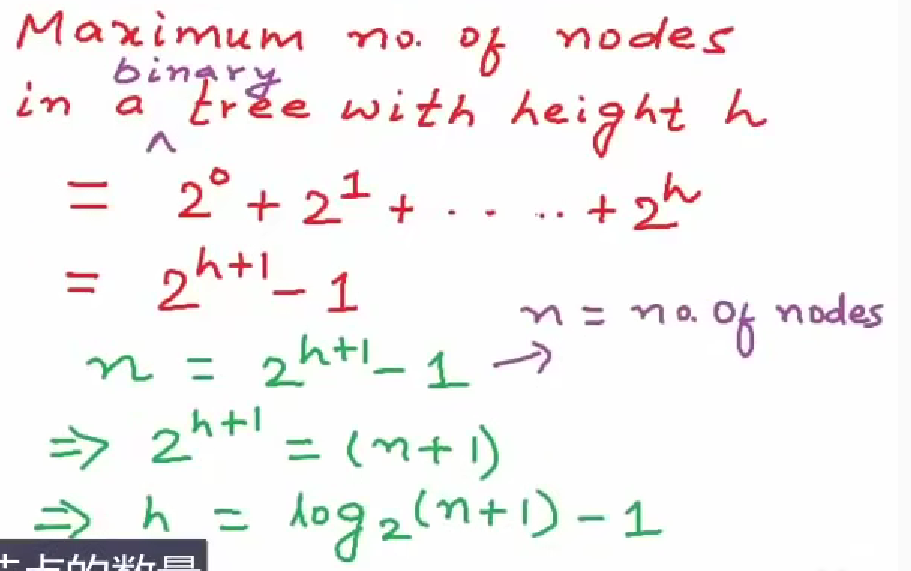 Maximum no. of nodes
in a binary tree with height h
= 2⁰ + 2¹ + ..... + 2ʰ
= 2ʰ⁺¹ - 1
n = no. of nodes
n = 2ʰ⁺¹ - 1 →
⇒ 2ʰ⁺¹ = (n+1)
⇒ h = log₂(n+1) - 1
点的数量